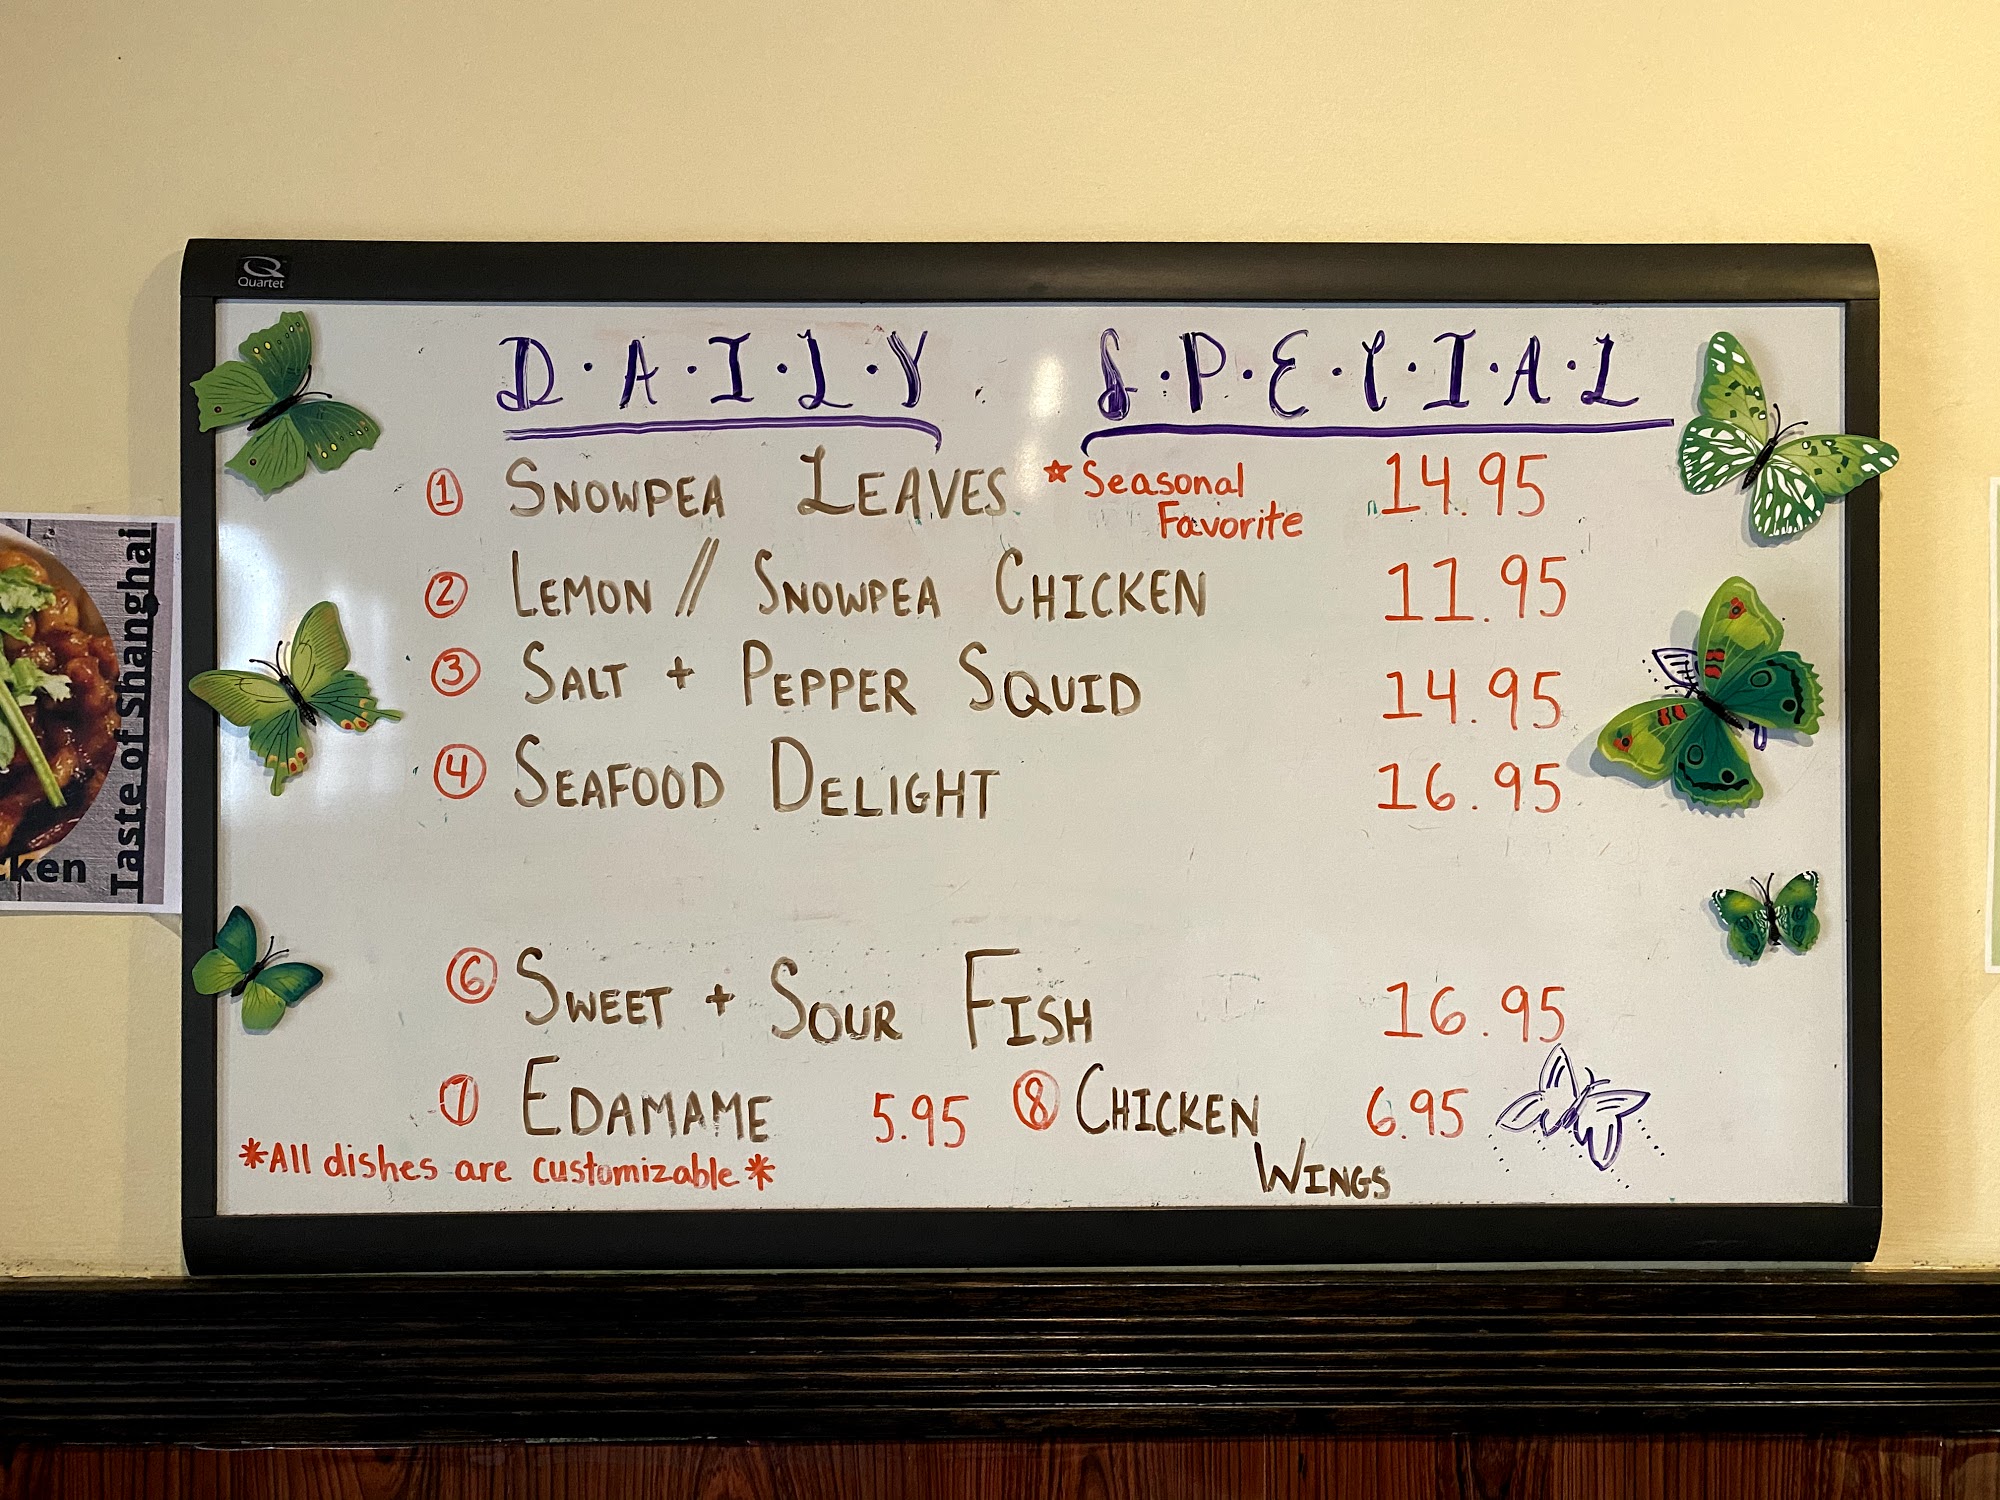 Quartet
D·A·I·L·Y S·P·E·C·I·A·L
1 SNOWPEA LEAVES *Seasonal Favorite 14.95
2 LEMON // SNOWPEA CHICKEN 11.95
3 SALT + PEPPER SQUID 14.95
4 SEAFOOD DELIGHT 16.95
6 SWEET + SOUR FISH 16.95
7 EDAMAME 5.95 8 CHICKEN WINGS 6.95
*All dishes are customizable*
Taste of Shanghai